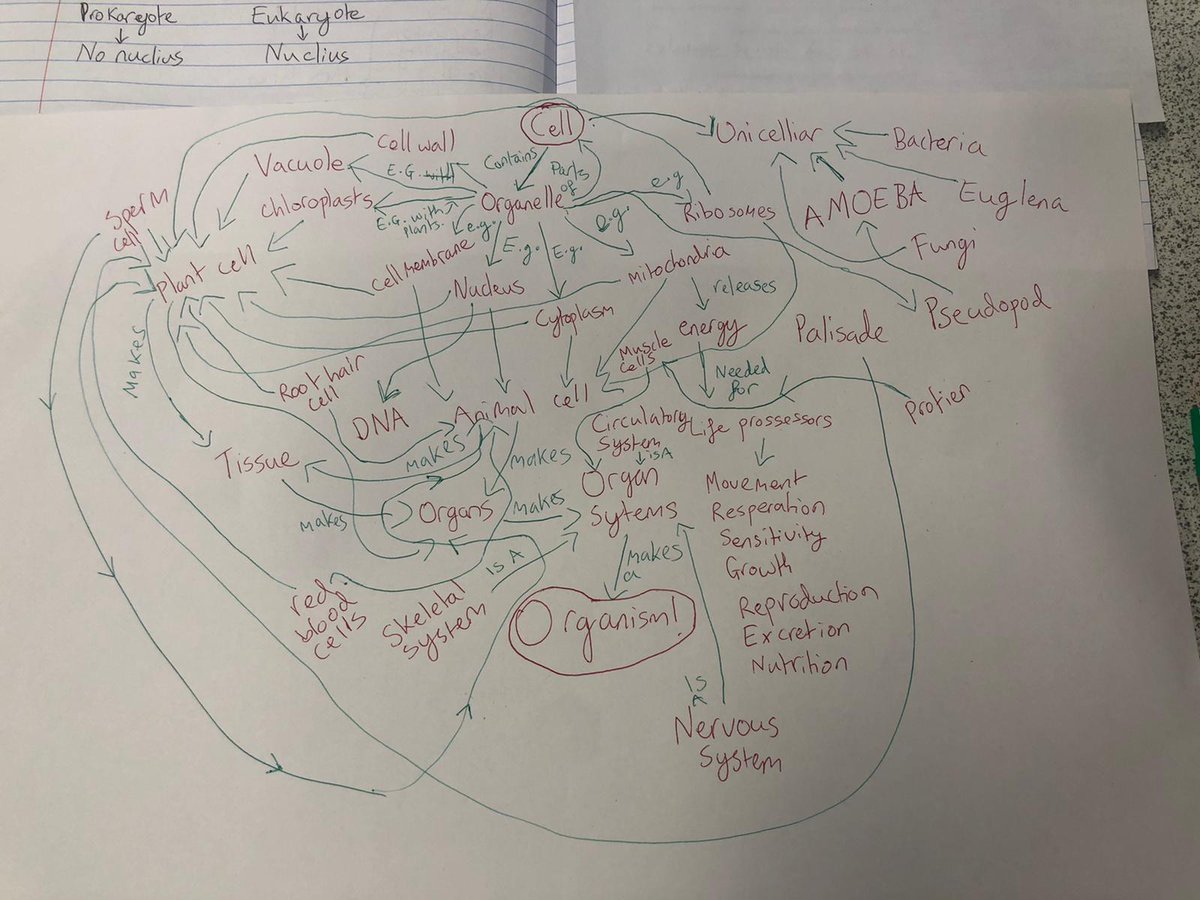 Prokaryote
Eukaryote
No nuclius
Nuclius
Cell
Cell wall
Unicelliar
Bacteria
Vacuole
E.G. with
Contains
Parts
of
chloroplasts
Organelle
e.g
Ribosomes
AMOEBA
Euglena
Sperm
cell
E.G. with
plants.
e.g.
E.g.
E.g.
e.g.
Fungi
Plant cell
Cell Membrane
Nucleus
Mitochondria
releases
Pseudopod
Cytoplasm
Makes
Muscle
cells
energy
Palisade
Root hair
cell
Needed
for
Protier
DNA
Animal cell
Circulatory
System
is A
Life prossessors
Tissue
makes
makes
Organ
Sytems
Movement
Resperation
Sensitivity
Growth
Reproduction
Excretion
Nutrition
makes
Organs
makes
is A
makes
a
red
blood
cells
Skeletal
System
Organism!
is
A
Nervous
System